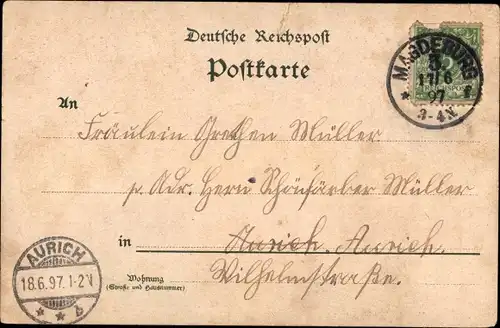 Deutsche Reichspost
Postkarte
MAGDEBURG
5.
17/6
97
* f
3-4N
An
Fräulein Grethen Müller
p. Adr. Herrn Schönfärber Müller
in Aurich. Aurich.
Wohnung Wilhelmstraße.
(Straße und Hausnummer)
AURICH
18.6.97.1-2N
* * b